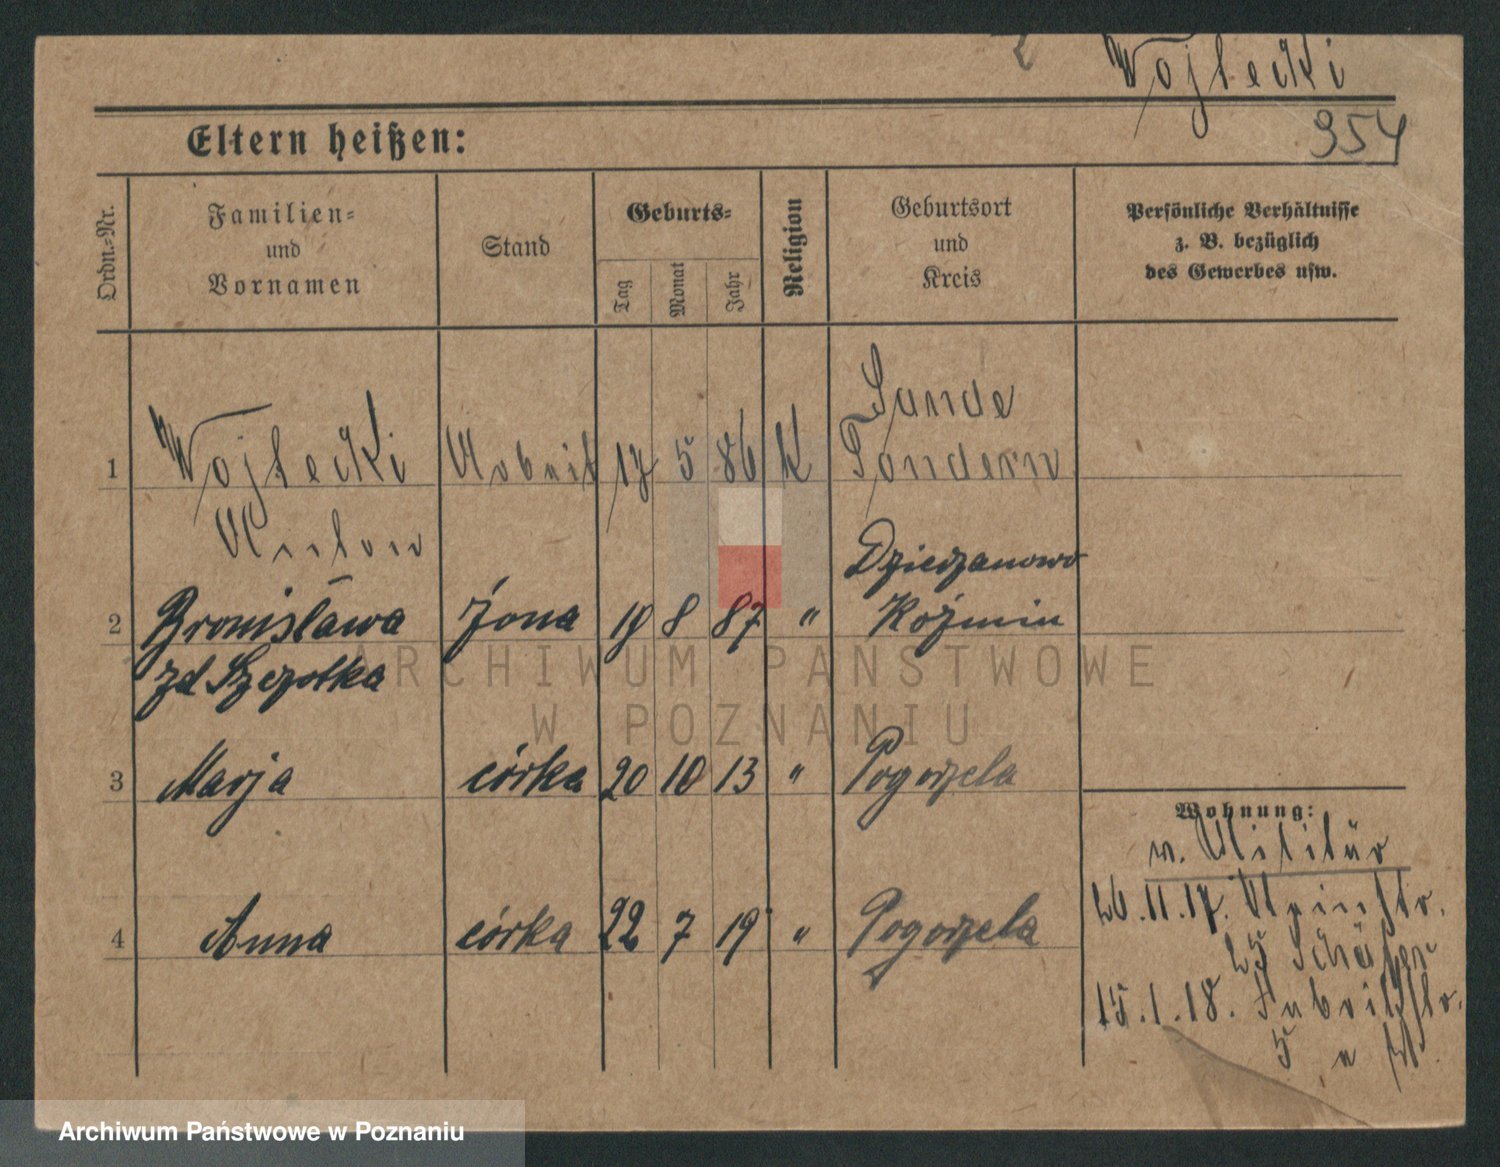 Wojtecki
954
Eltern heißen:
Ordn.-Nr.
Familien-
und
Vornamen
Stand
Geburts-
Tag
Monat
Jahr
Religion
Geburtsort
und
Kreis
Persönliche Verhältnisse
z. B. bezüglich
des Gewerbes usw.
1 Wojtecki Arbeit 17 5 86 K Sande
Tondern
Anton
2 Bronisława żona 19 8 87 " Dzierzanowo
Koźmin
zd Szczotka
3 Marja córka 20 10 13 " Pogorzela
4 Anna córka 22 7 19 " Pogorzela
Wohnung:
v. Militär
26.11.17.
25 Schäfer
15.1.18. Fabrikstr.
5
ARCHIWUM PAŃSTWOWE
W POZNANIU
Archiwum Państwowe w Poznaniu